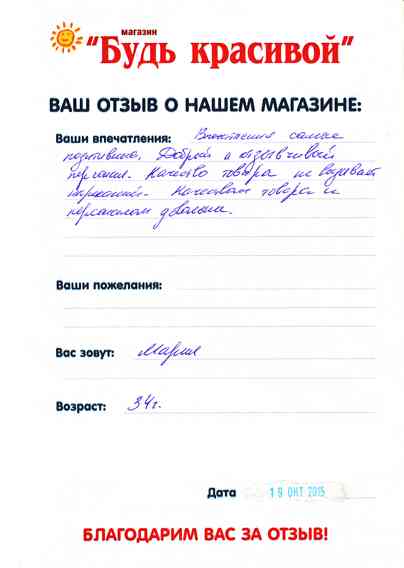 магазин
"Будь красивой"
ВАШ ОТЗЫВ О НАШЕМ МАГАЗИНЕ:
Ваши впечатления: Впечатления самые
позитивные. Добрый и отзывчивый
персонал. Качество товара не вызывает
нареканий. Качеством товара и
персоналом довольна.
Ваши пожелания:
Вас зовут: Мария
Возраст: 34 г.
Дата 19 ОКТ 2015
БЛАГОДАРИМ ВАС ЗА ОТЗЫВ!